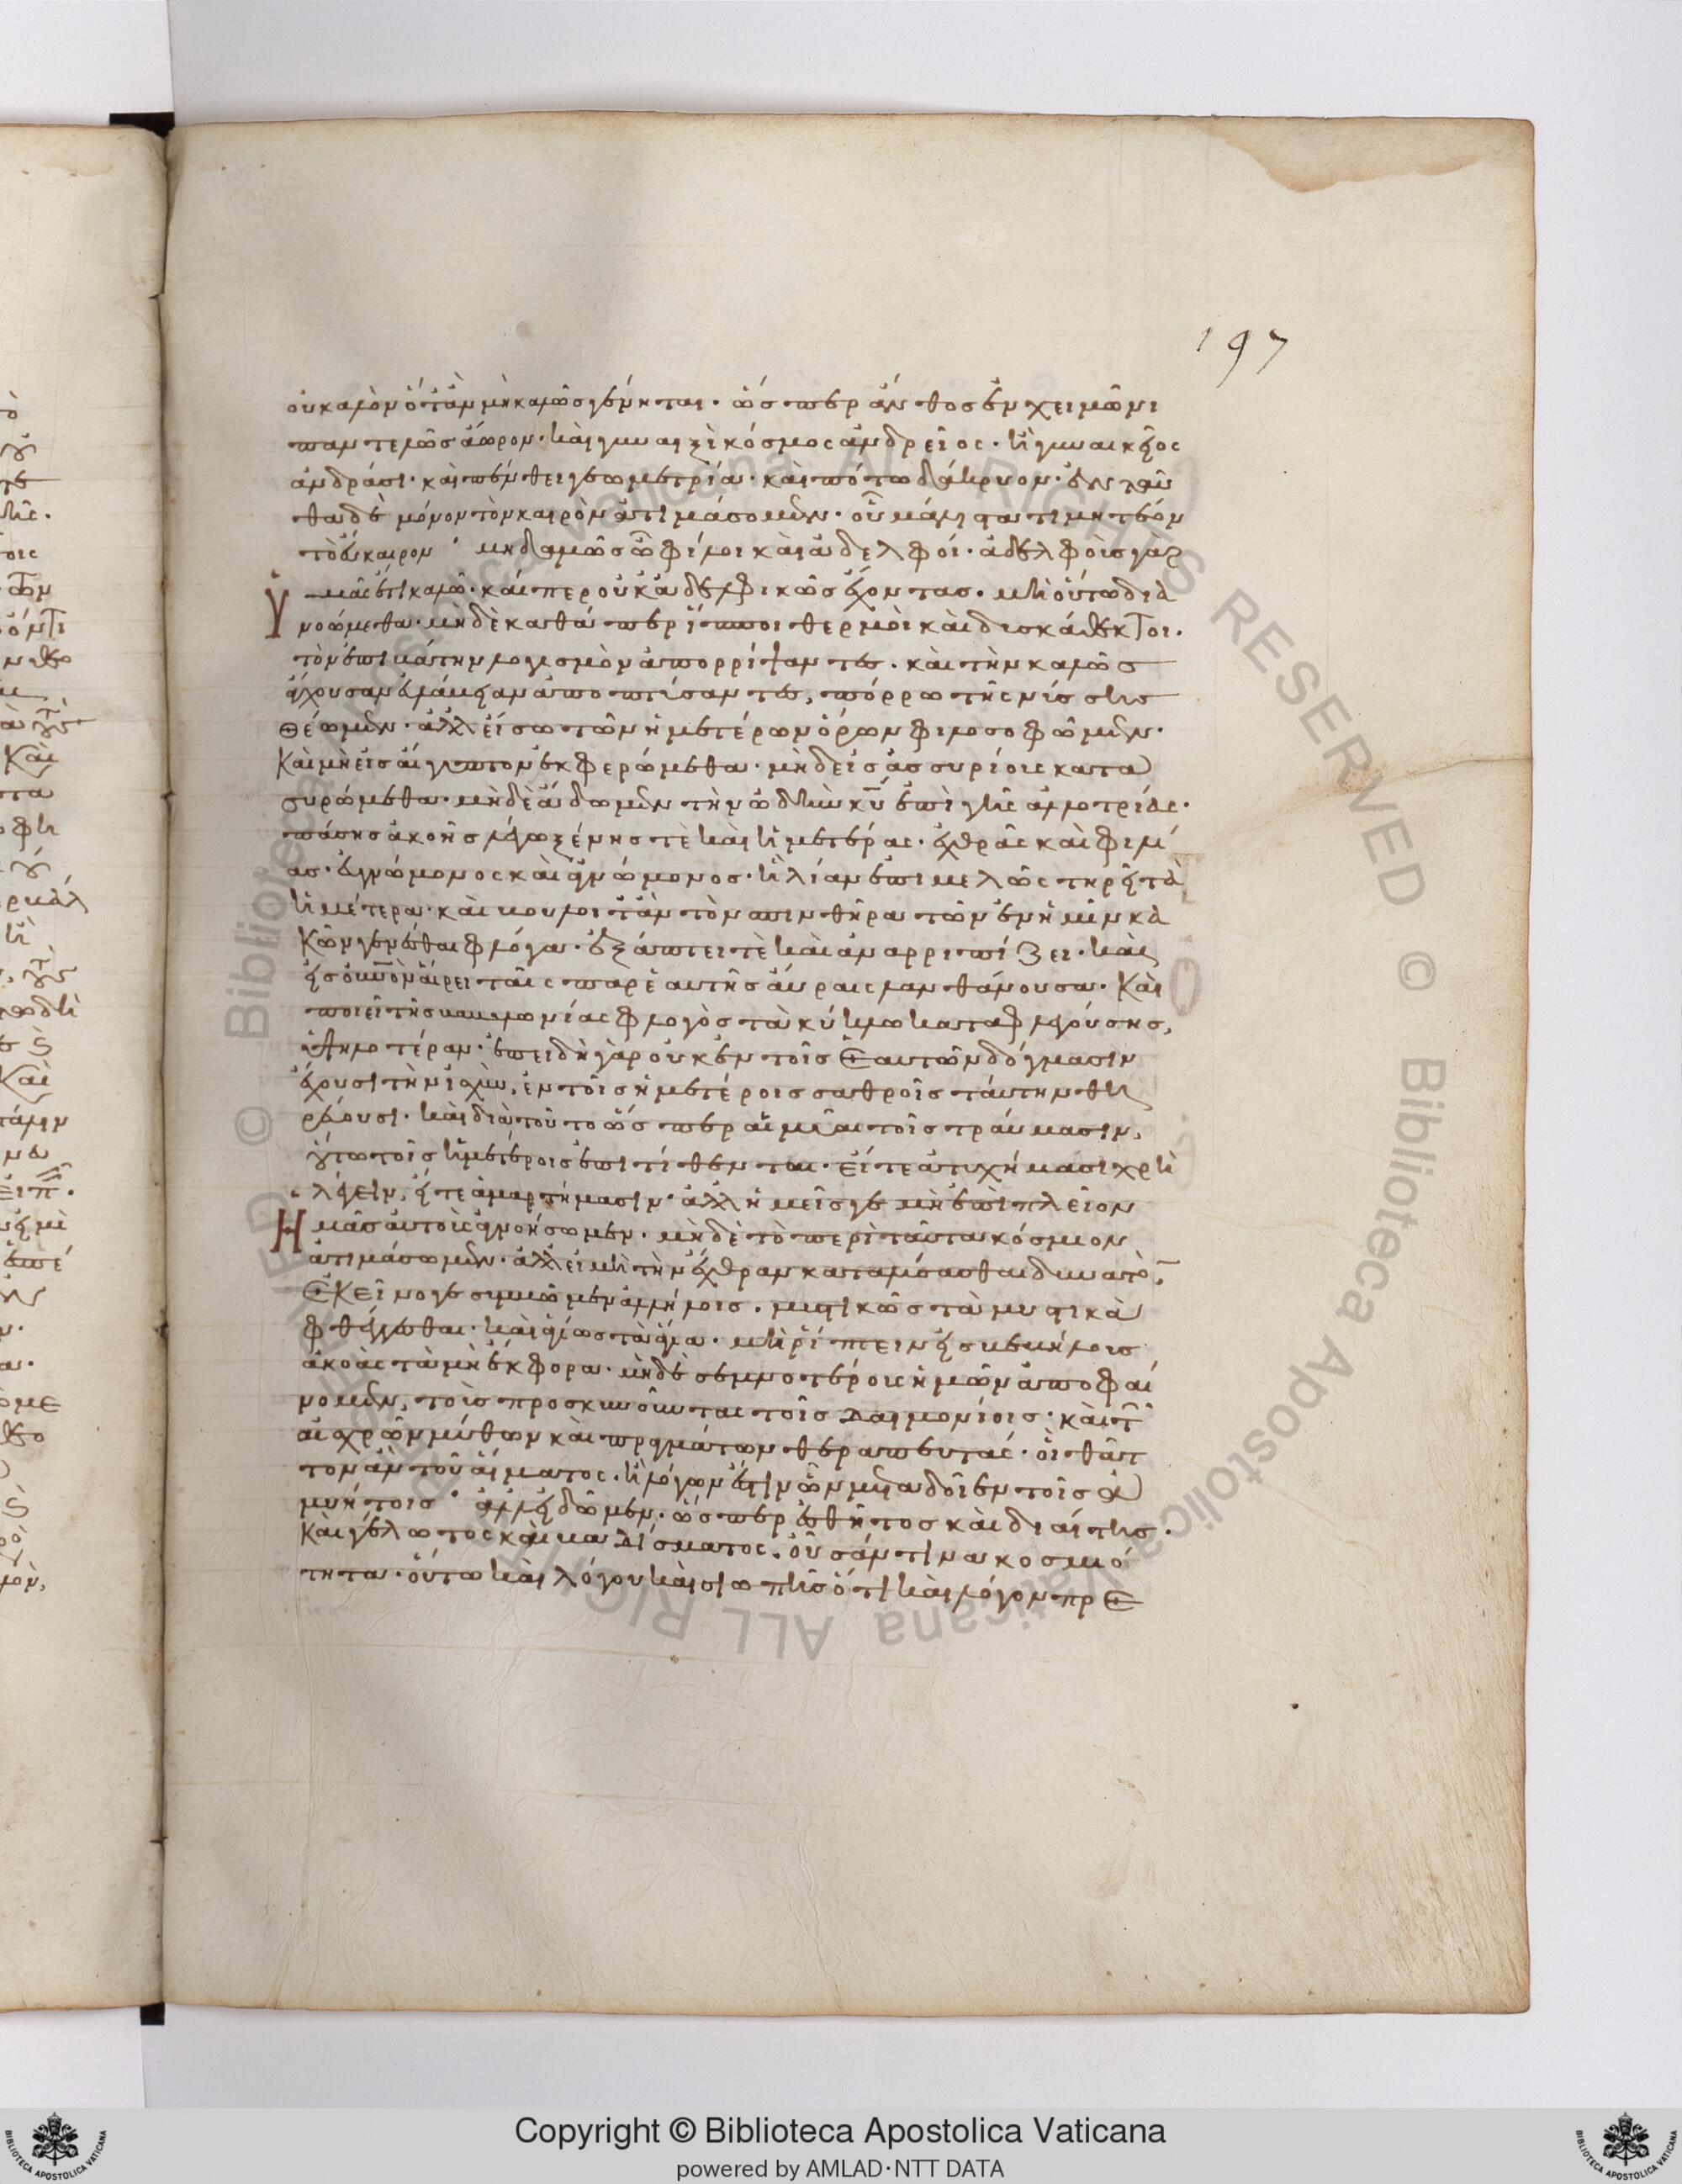 197
οὐ καλὸν ὅταν μὴ καλῶς γένηται· ὥσπερ ἄνθος ἐν χειμῶνι
παντελῶς ἄωρον· καὶ γυναιξὶ κόσμος ἀνδρεῖος· ἢ γυναικεῖος
ἀνδράσι· καὶ πένθει γεωμετρία· καὶ πότω δάκρυον· ἐνταῦ
θα δὲ μόνον τὸν καιρὸν ἀτιμάσομεν· οὗ μάλιστα τιμητέον
τὸ εὔκαιρον· μηδαμῶς ὦ φίλοι καὶ ἀδελφοί· ἀδελφοὺς γὰρ
ὑμᾶς ἔτι καλῶ· καίπερ οὐκ ἀδελφικῶς ἔχοντας· μὴ οὕτω δια
νοώμεθα· μηδὲ καθάπερ ἵπποι θερμοὶ καὶ δυσκάθεκτοι·
τὸν ἐπιβάτην λογισμὸν ἀπορρίψαντες· καὶ τὴν καλῶς
ἄγχουσαν εὐλάβειαν ἀποπτύσαντες, πόρρω τῆς νύσσης
θέωμεν· ἀλλ' εἴσω τῶν ἡμετέρων ὅρων φιλοσοφῶμεν·
Καὶ μὴ εἰς αἴγυπτον ἐκφερώμεθα· μηδὲ εἰς ἀσσυρίους κατα
συρώμεθα· μηδὲ ἄδωμεν τὴν ὠδὴν κυ ἐπὶ γῆς ἀλλοτρίας·
πάσης ἀκοῆς λέγω ξένης τὲ καὶ ἡμετέρας· ἐχθρᾶς καὶ φιλί
ας· εὐγνώμονος καὶ ἀγνώμονος· ἣ λίαν ἐπιμελῶς τηρεῖ τὰ
ἡμέτερα· καὶ βούλοιτ' ἂν τὸν σπινθῆρα τῶν ἐν ἡμῖν κα
Κῶν γενέσθαι φλόγα· ἐξάπτει τὲ καὶ ἀναρριπίζει· καὶ
εἰς οὐνὸν αἴρει ταῖς παρ' ἑαυτῆς αὔραις λανθάνουσα· Καὶ
ποιεῖ τῆς βαβυλωνίας φλογὸς τὰ κύκλω καταφλεγούσης,
ὑψηλοτέραν· ἐπειδὴ γὰρ οὐκ ἐν τοῖς ἑαυτῶν δόγμασιν
ἔχουσι τὴν ἰσχὺν, ἐν τοῖς ἡμετέροις σαθροῖς ταύτην θη
ρεύουσι· καὶ διὰ τοῦτο ὥσπερ αἱ μυῖαι τοῖς τραύμασιν,
οὕτω τοῖς ἡμετέροις ἐπιτίθενται· εἴτε ἀτυχήμασι χρὴ
λέγειν, εἴτε ἁμαρτήμασιν· ἀλλ' ἡμεῖς γε μὴ ἐπὶ πλεῖον
ἡμᾶς αὐτοὺς ἀγνοήσωμεν· μηδὲ τὸ περὶ ταῦτα κόσμιον
ἀτιμάσωμεν· ἀλλ' εἰ μὴ τὴν ἔχθραν καταλύσασθαι δυνατὸ·
Ἐκεῖνο γε συμβῶμεν ἀλλήλοις· μυστικῶς τὰ μυστικὰ
φθέγγεσθαι· καὶ ἁγίως τὰ ἅγια· μὴ ῥίπτειν εἰς βεβήλους
ἀκοὰς τὰ μὴ ἔκφορα· μηδὲ σεμνοτέρους ἡμῶν ἀποφαί
νομεν, τοὺς προσκυνοῦντας τοῖς δαιμονίοις· καὶ τ
αἰσχρῶν μύθων καὶ πραγμάτων θεραπευτάς· οἳ θᾶτ
τον ἂν τοῦ αἵματος· ἢ λόγων ἔστιν ὧν μεταδοῖεν τοῖς ἀ
μυήτοις· ἀλλ' εἰδῶμεν· ὥσπερ ἐσθῆτος καὶ διαίτης·
Καὶ γέλωτος καὶ βαδίσματος· οὖσάν τινα κοσμιό
τητα· οὕτω καὶ λόγου καὶ σιωπῆς ὅτι καὶ λόγον πρε
Copyright © Biblioteca Apostolica Vaticana
powered by AMLAD·NTT DATA